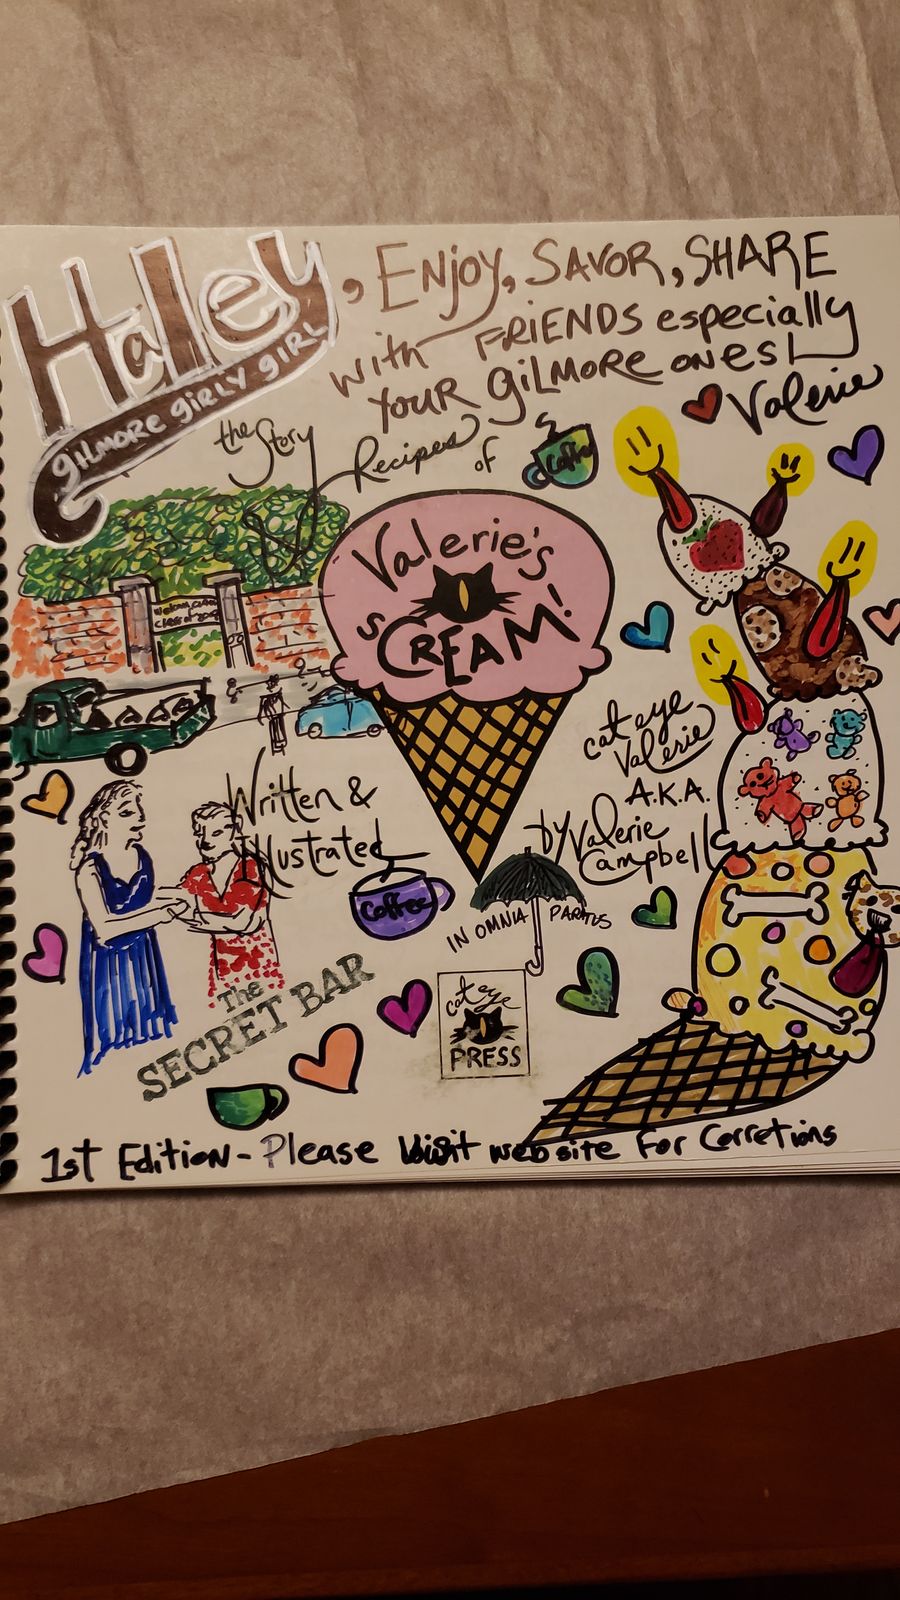 Haley, Enjoy, SAVOR, SHARE
with FRiENDS especially
YOUR GiLMORE ones!
Valerie
GiLMORE GiRLY GiRL
the Story
Recipes
of
Coffee
Valerie's
sCREAM!
Welcome
class of
cat eye
Valerie
A.K.A.
Written &
Illustrated
by Valerie
Campbell
Coffee
IN OMNIA PARATUS
The
SECRET BAR
cat eye
PRESS
1st Edition - Please Visit website For Corretions